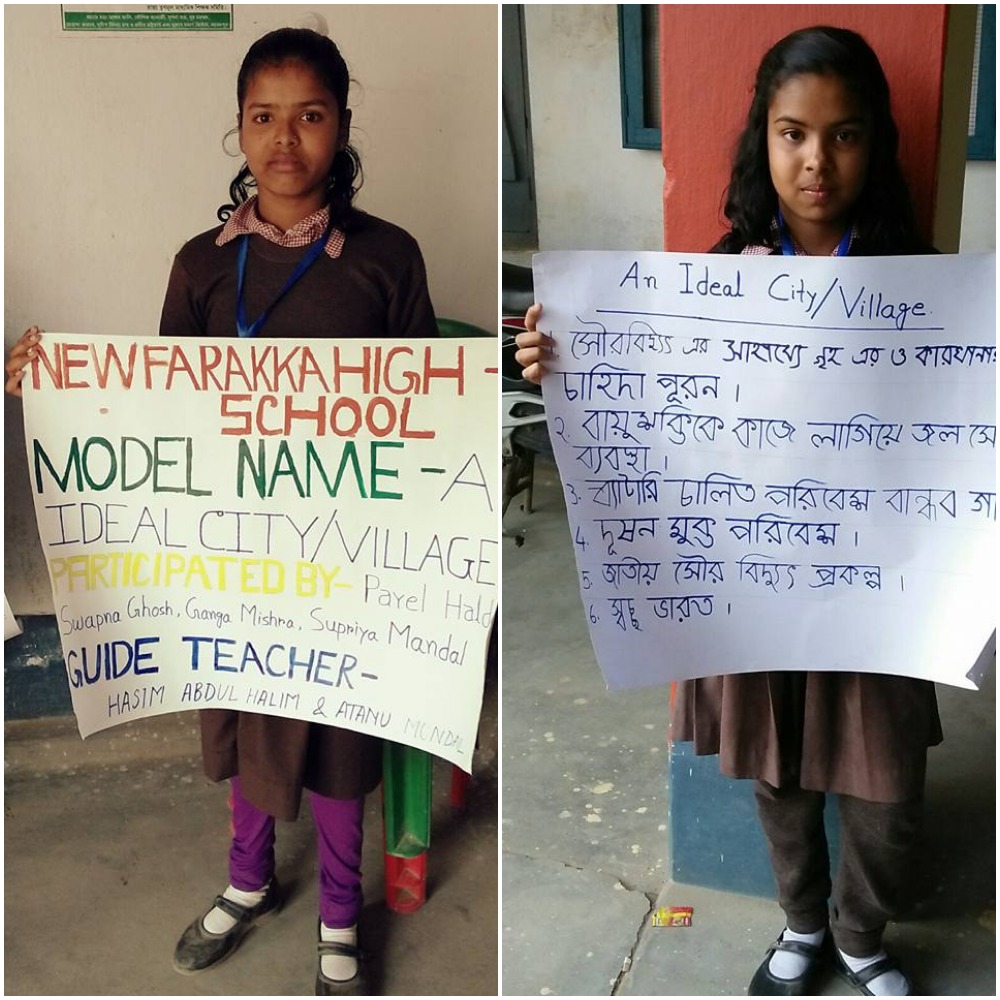 NEW FARAKKA HIGH -
SCHOOL
MODEL NAME - A
IDEAL CITY/VILLAGE
PARTICIPATED BY- Payel Hald
Swapna Ghosh, Ganga Mishra, Supriya Mandal
GUIDE TEACHER-
HASIM ABDUL HALIM & ATANU MONDAL
An Ideal City/Village.
1. সৌরবিদ্যুৎ এর সাহায্যে গৃহ এর ও কারখানার
চাহিদা পূরন।
2. বায়ুশক্তিকে কাজে লাগিয়ে জল সে
ব্যবস্থা।
3. ব্যাটারি চালিত পরিবেশ বান্ধব গা
4. দূষন মুক্ত পরিবেশ।
5. জাতীয় সৌর বিদ্যুৎ প্রকল্প।
6. স্বচ্ছ ভারত।